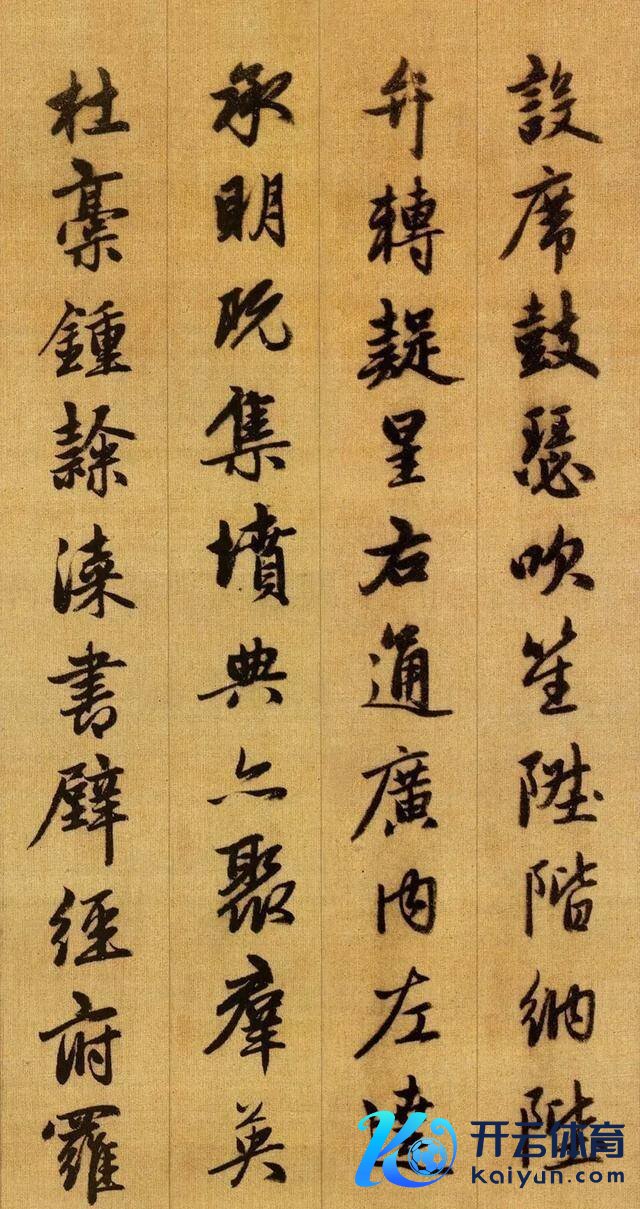 設席鼓瑟吹笙陞階納陛
弁轉疑星右通廣内左達
承明既集墳典亦聚羣英
杜稾鍾隸漆書壁經府羅
开云体育
kaiyun.com